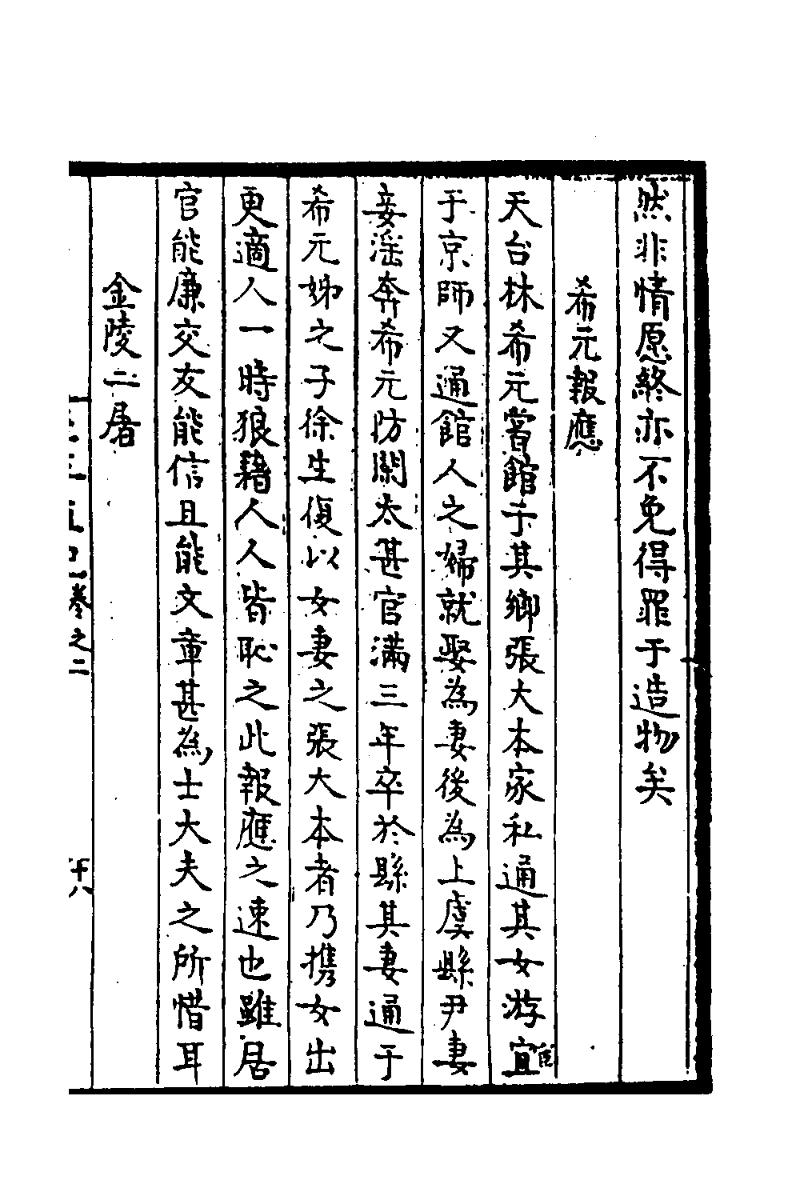 然非情愿終亦不免得罪于造物矣
希元報應
天台林希元嘗館于其鄉張大本家私通其女游宜宦
于京師又通館人之婦就娶為妻後為上虞縣尹妻
妾滛奔希元防閑太甚官滿三年卒於縣其妻通于
希元姊之子徐生復以女妻之張大本者乃携女出
更適人一時狼藉人人皆恥之此報應之速也雖居
官能廉交友能信且能文章甚為士大夫之所惜耳
金陵二屠
卷之二
十八